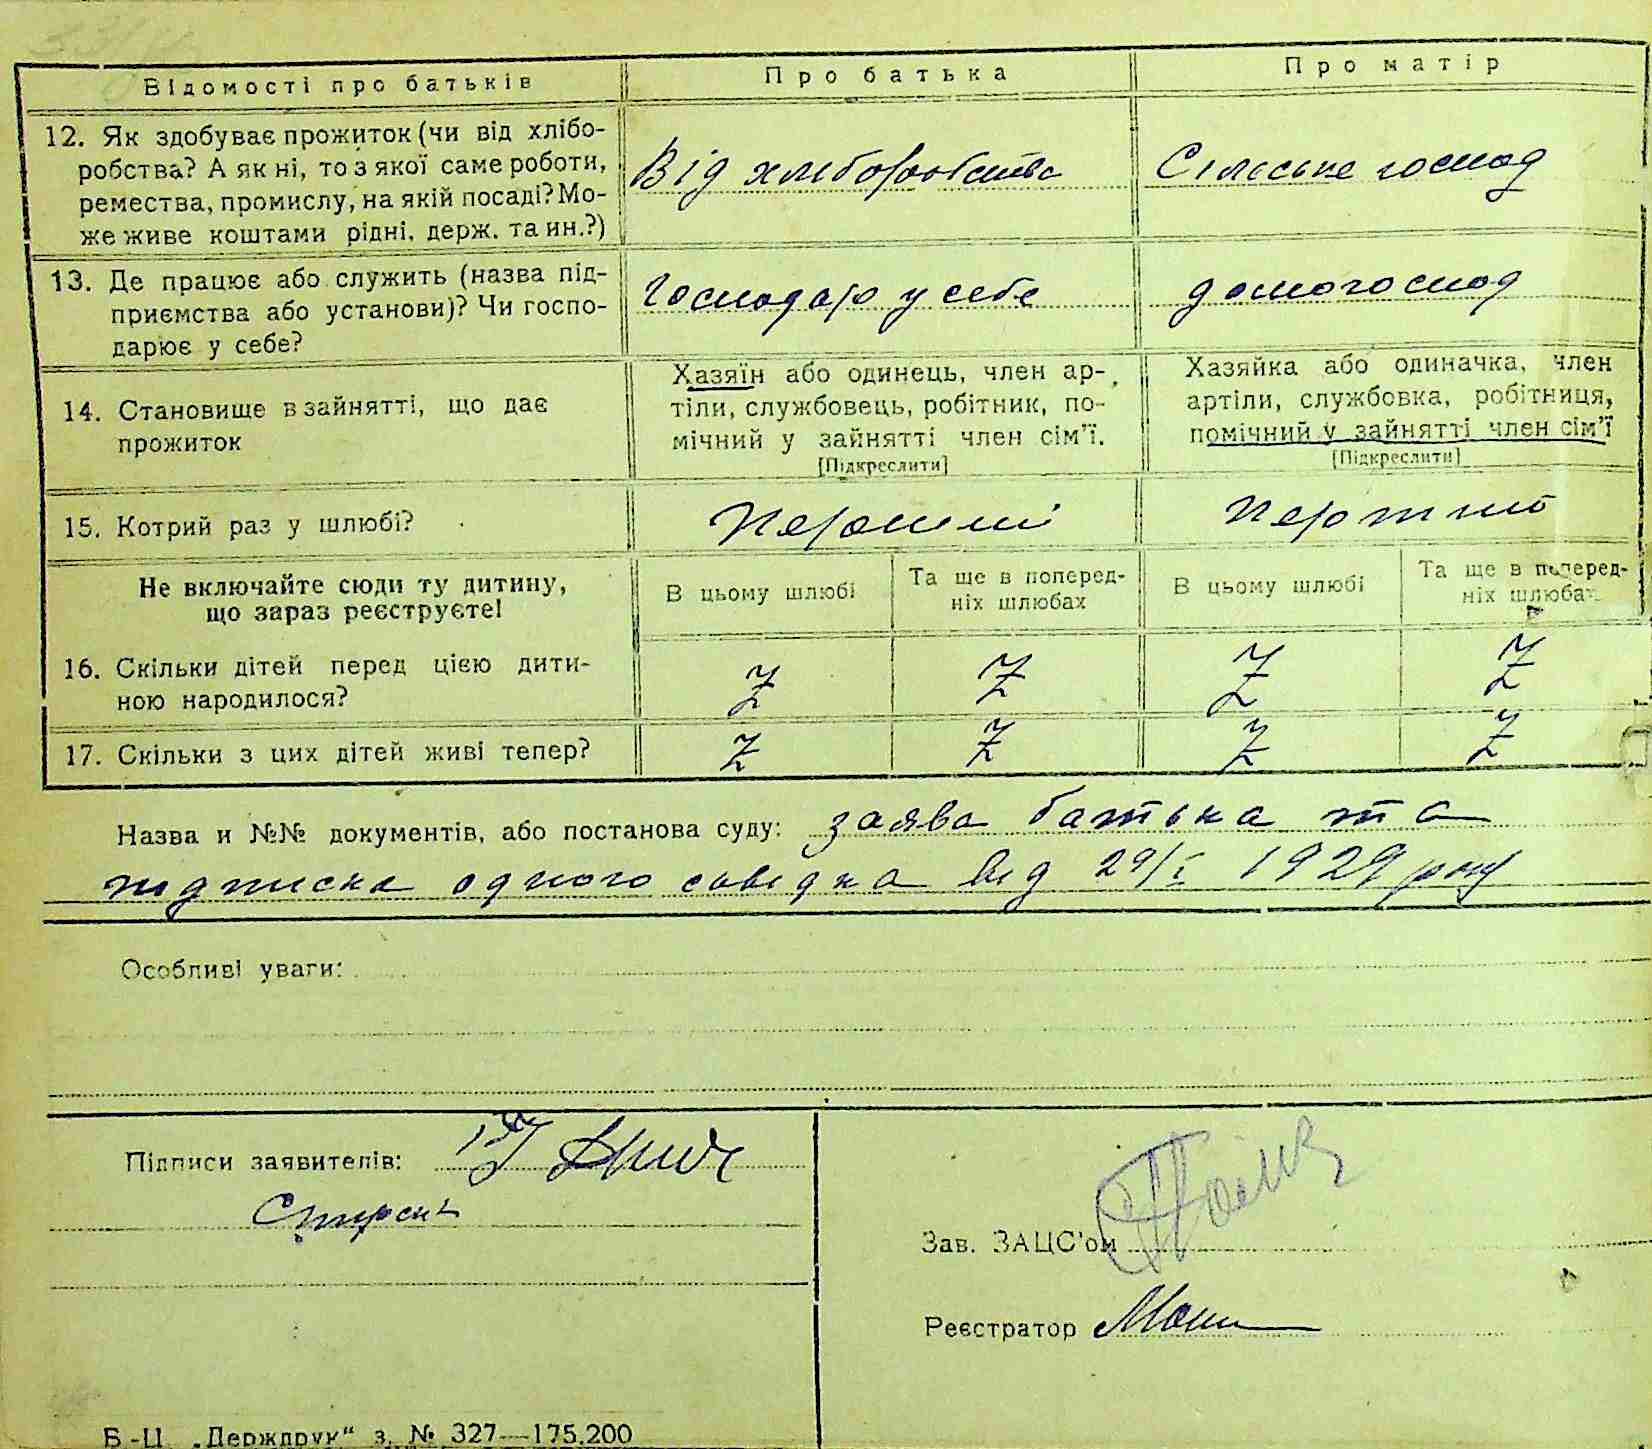 Відомості про батьків
Про батька
Про матір
12. Як здобуває прожиток (чи від хлібо-
робства? А як ні, то з якої саме роботи,
ремества, промислу, на якій посаді? Мо-
же живе коштами рідні, держ. та ин.?)
Від хліборобства
Сільське господ
13. Де працює або служить (назва під-
приємства або установи)? Чи госпо-
дарює у себе?
Господар у себе
домогоспод
14. Становище в зайнятті, що дає
прожиток
Хазяїн або одинець, член ар-
тіли, службовець, робітник, по-
мічний у зайнятті член сім'ї.
[Підкреслити]
Хазяйка або одиначка, член
артіли, службовка, робітниця,
помічний у зайнятті член сім'ї
[Підкреслити]
15. Котрий раз у шлюбі?
Перший
Перший
Не включайте сюди ту дитину,
що зараз реєструєте!
В цьому шлюбі
Та ще в поперед-
ніх шлюбах
В цьому шлюбі
Та ще в поперед-
ніх шлюбах
16. Скільки дітей перед цією дити-
ною народилося?
Z Z Z Z
17. Скільки з цих дітей живі тепер?
Z Z Z Z
Назва и №№ документів, або постанова суду: заява батька та
підписка одного свідка від 29/I 1929 року
Особливі уваги:
Підписи заявителів:
Зав. ЗАЦС'ом
Реєстратор
Б-Ц. „Держдрук“ з. № 327—175.200